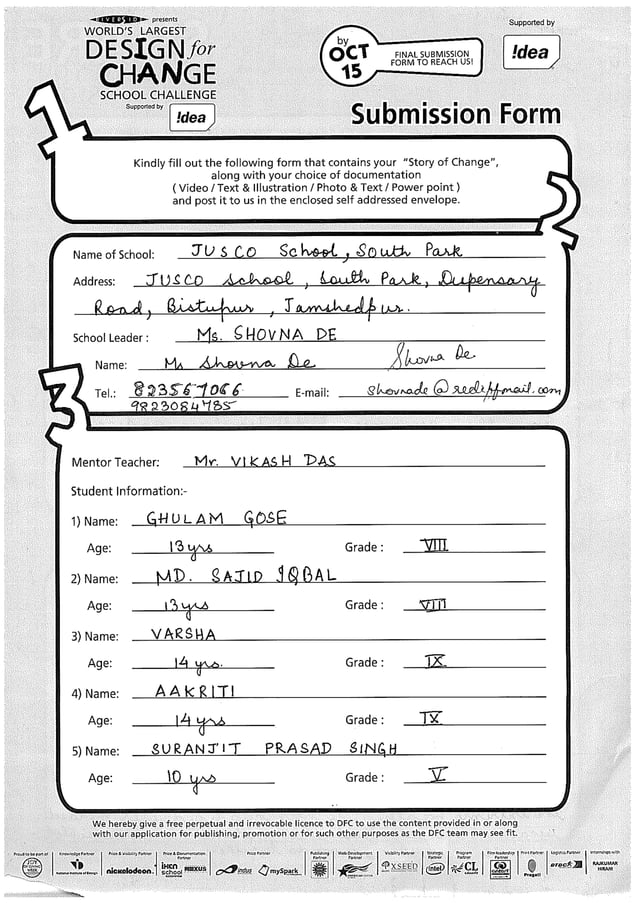 RIVERSIDE presents
WORLD'S LARGEST
DESIGN for
CHANGE
SCHOOL CHALLENGE
Supported by
!dea
by
OCT
15
FINAL SUBMISSION
FORM TO REACH US!
Supported by
!dea
Submission Form
1
Kindly fill out the following form that contains your "Story of Change",
along with your choice of documentation
( Video / Text & Illustration / Photo & Text / Power point )
and post it to us in the enclosed self addressed envelope.
2
Name of School: JUSCO School, South Park
Address: JUSCO School, South Park, Dispensary
Road, Bistupur, Jamshedpur.
School Leader : Ms. SHOVNA DE
Name: Ms Shovna De Shovna De
Tel.: 823567066 E-mail: shovnade@rediffmail.com
9823084785
3
Mentor Teacher: Mr. VIKASH DAS
Student Information:-
1) Name: GHULAM GOSE
Age: 13 yrs Grade : VIII
2) Name: MD. SAJID IQBAL
Age: 13 yrs Grade : VIII
3) Name: VARSHA
Age: 14 yrs. Grade : IX
4) Name: AAKRITI
Age: 14 yrs Grade : IX
5) Name: SURANJIT PRASAD SINGH
Age: 10 yrs Grade : V
We hereby give a free perpetual and irrevocable licence to DFC to use the content provided in or along
with our application for publishing, promotion or for such other purposes as the DFC team may see fit.
Proud to be part of Knowledge Partner Prize & Visibility Partner Prize & Documentation Partner Prize Partner Publishing Partner Web Development Partner Visibility Partner Strategic Partner Program Partner Film Readership Partner Print Partner Logistics Partner Internships with
National Institute of Design nickelodeon. school NEXUS indus mySpark XSEED intel CL Pragati RAJKUMAR HIRANI